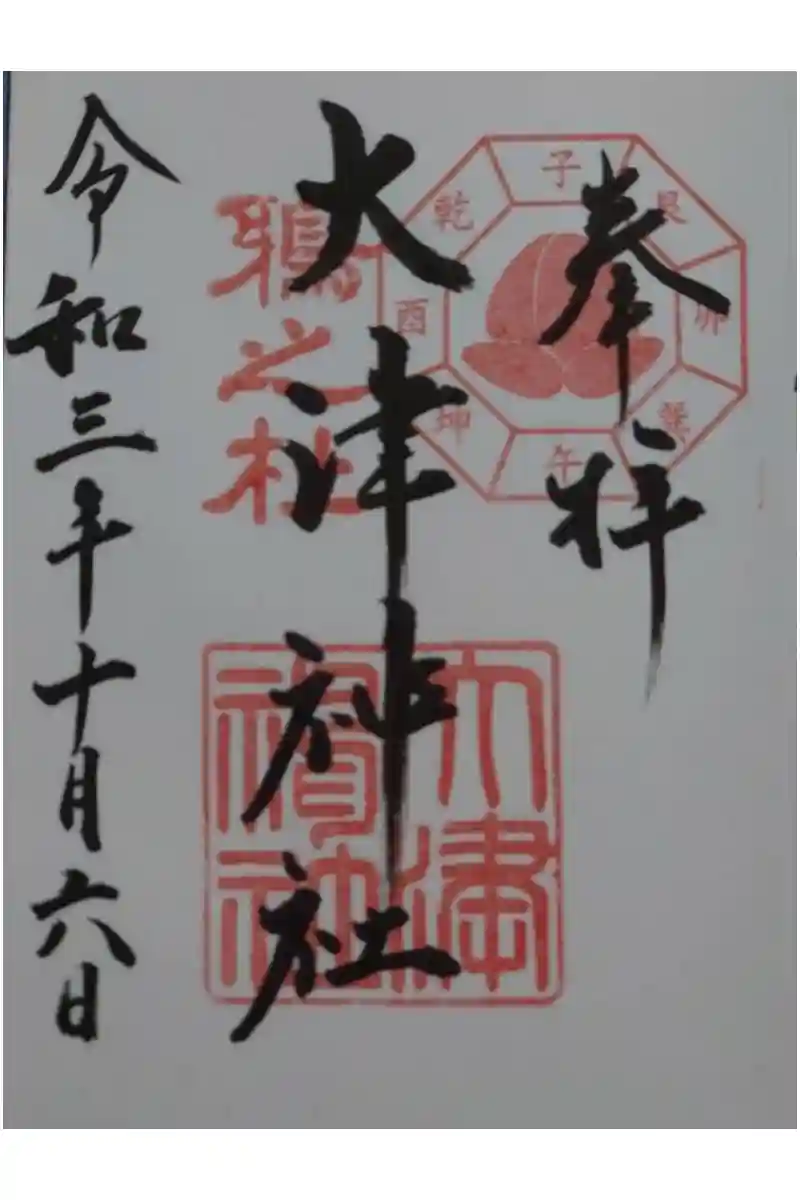 奉拝
子
艮
卯
巽
午
坤
酉
乾
大津神社
鵜之杜
大津
神社
令和三年十月六日